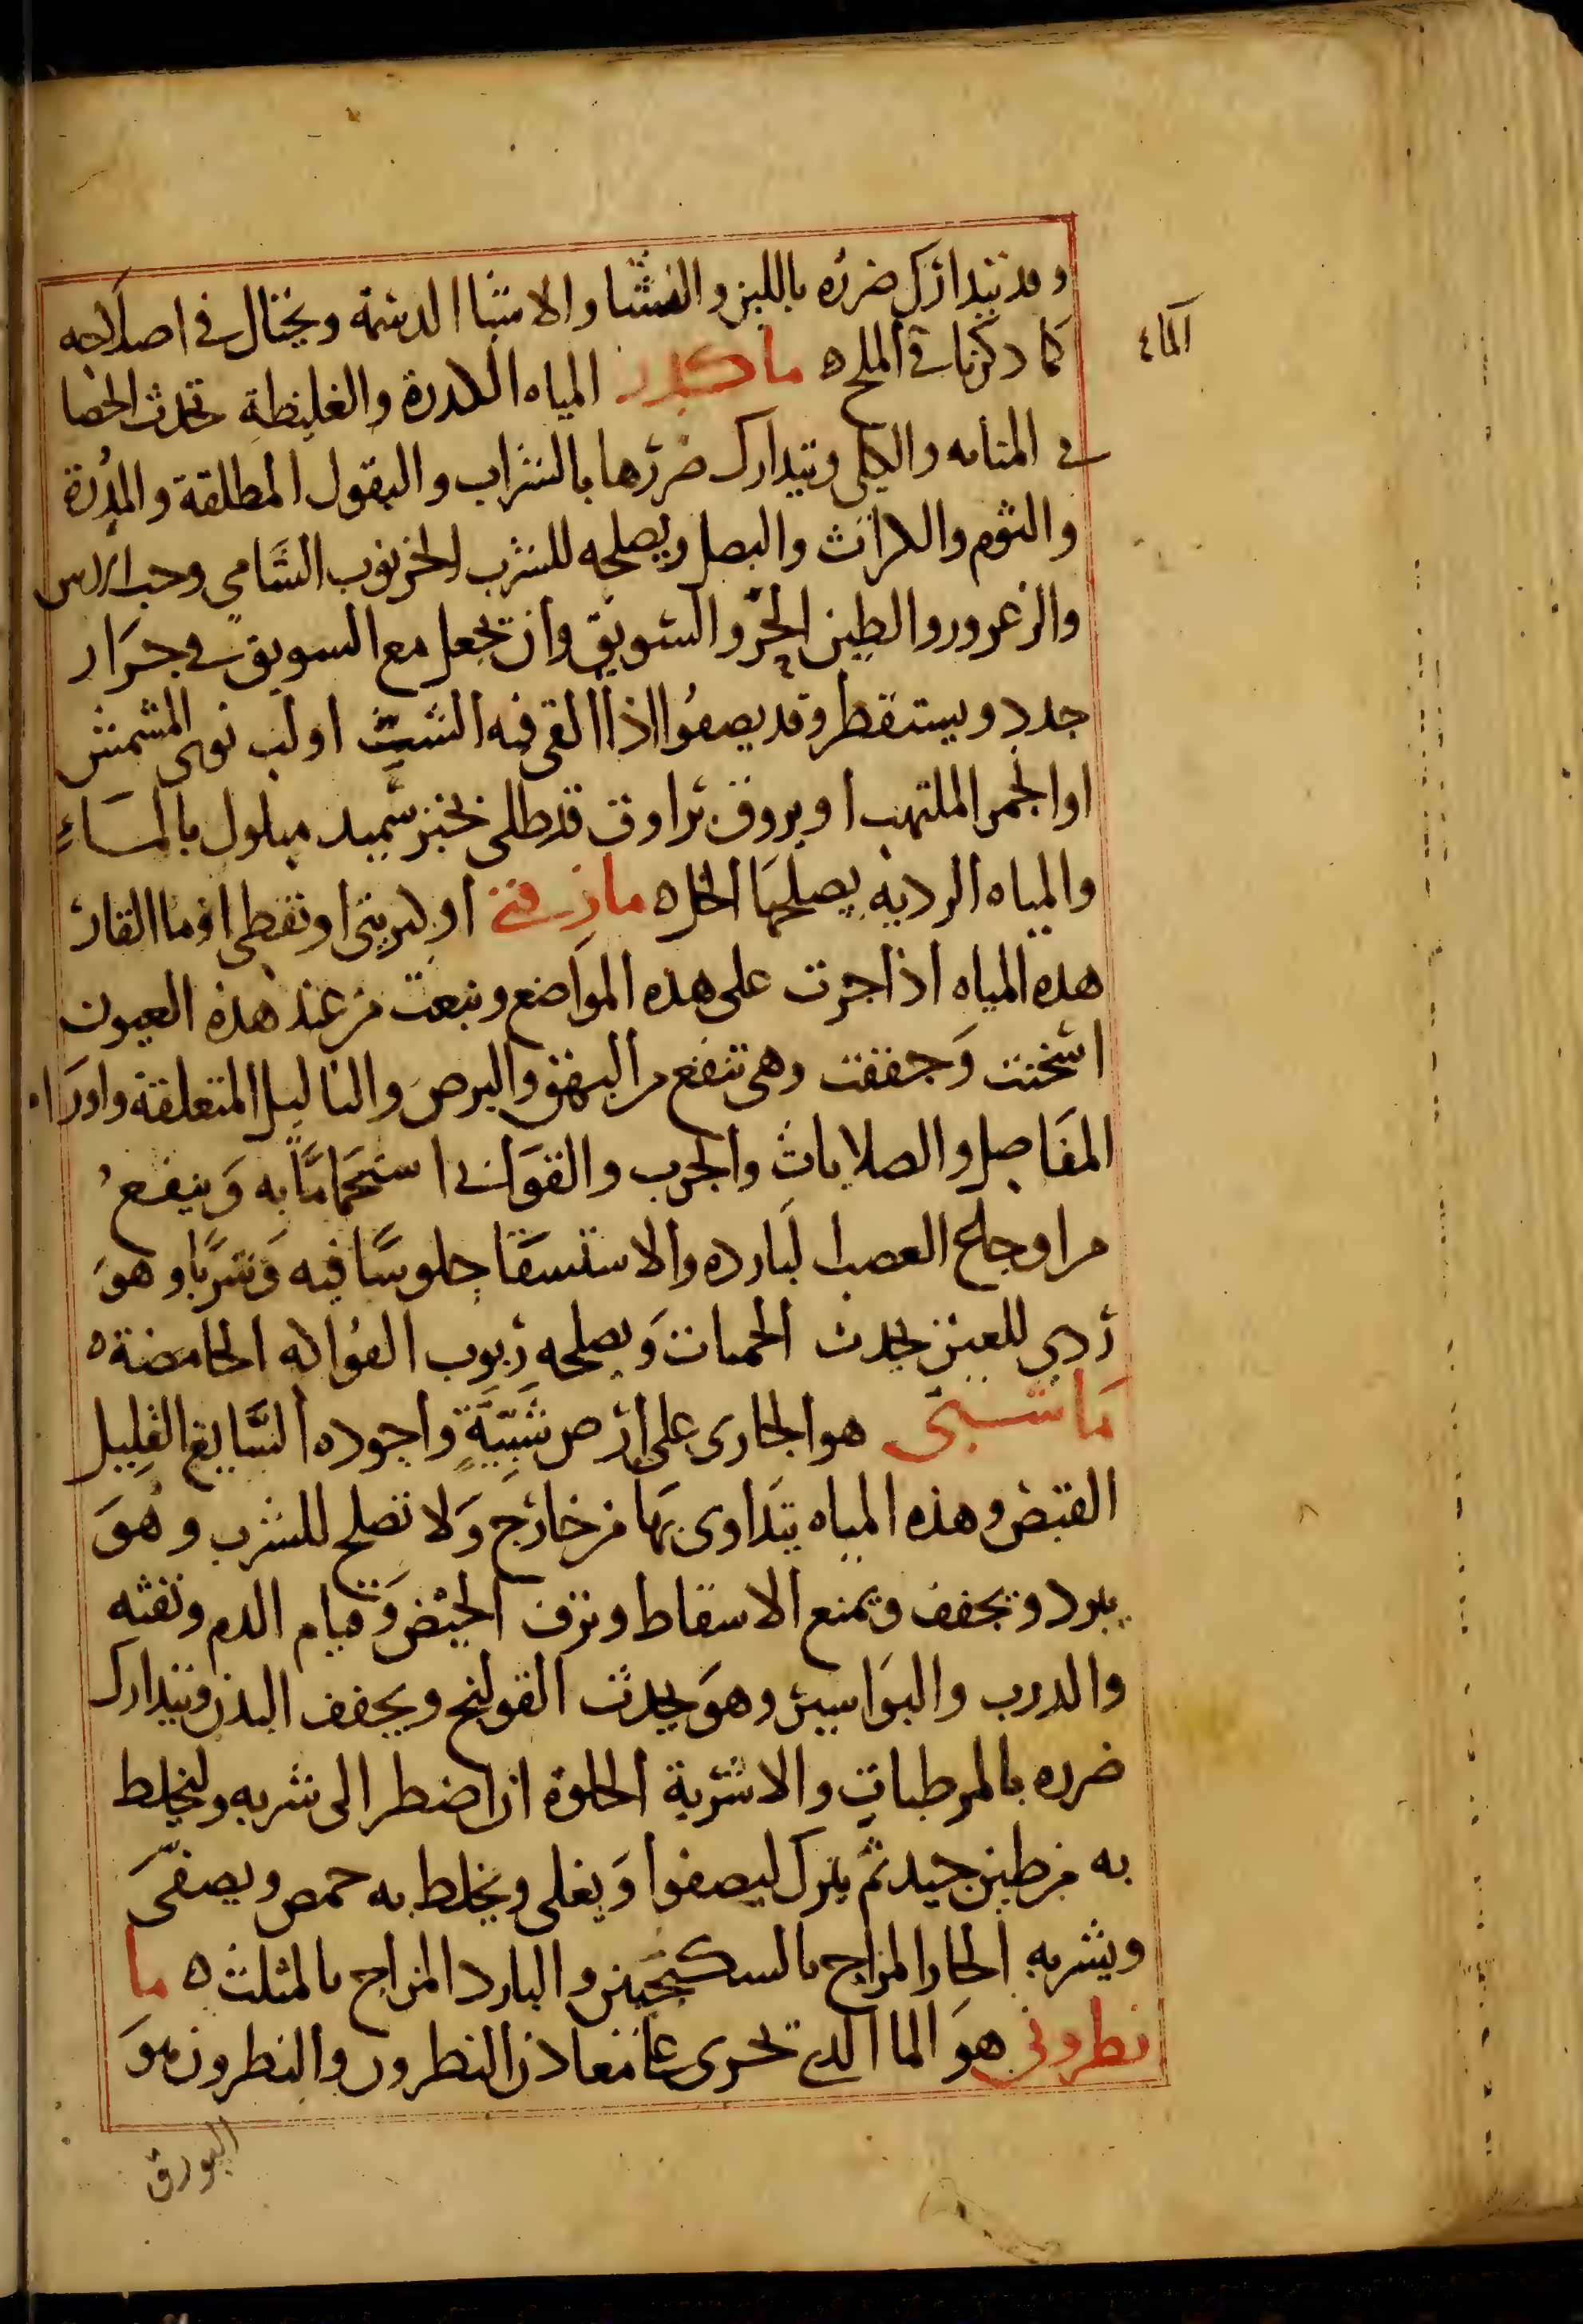 وقد يتدارك ضرره باللبن والنشا والاشيا الدسمة ويحتال في اصلاحه
كما ذكرنا في الملح ه ما كدر المياه الكدرة والغليظة تحدث الحصا
الماء
في المثانه والكلى ويتدارك ضررها بالشراب والبقول المطلقة والمدرة
والثوم والكراث والبصل ويصلحه للشرب الخرنوب الشامي وحب الاس
والزعرور والطين الحر والسويق وان يجعل مع السويق في جرار
جدد ويستقطر وقد يصفوا اذا القى فيه الشب او لب نوى المشمش
او الجمر الملتهب او يروق براوق قد طلى بخبز سميد مبلول بالماء
والمياه الرديه يصلحها الخل ه ما زفتى او كبريتى او نفطى او ما القار
هذه المياه اذا جرت على هذه المواضع ونبعت من عند هذه العيون
اسخنت وجففت وهى تنفع من البهق والبرص والثاليل المتعلقة واورام
المفاصل والصلابات والجرب والقوابى استحماما به وينفع
من اوجاع العصب البارده والاستسقا جلوسا فيه وشربا وهو
ردي للعين يحدث الحميات ويصلحه ربوب الفواكه الحامضة ه
ما شبى هو الجارى على ارض شبية واجوده السايغ القليل
القبض وهذه المياه يتداوى بها من خارج ولا تصلح للشرب وهو
يبرد ويجفف ويمنع الاسقاط ونزف الحيض وقيام الدم ونفثه
والدرب والبواسير وهو يحدث القولنج ويجفف البدن ويتدارك
ضرره بالمرطبات والاشربة الحلوة ان اضطر الى شربه وليخلط
به من طين جيد ثم يترك ليصفوا ويغلى ويخلط به حمص ويصفى
ويشربه الحار المزاج بالسكنجبين والبارد المزاج بالمثلث ه ما
نطرونى هو الما الذي تجرى على معادن النطرون والنطرون هو
البورق